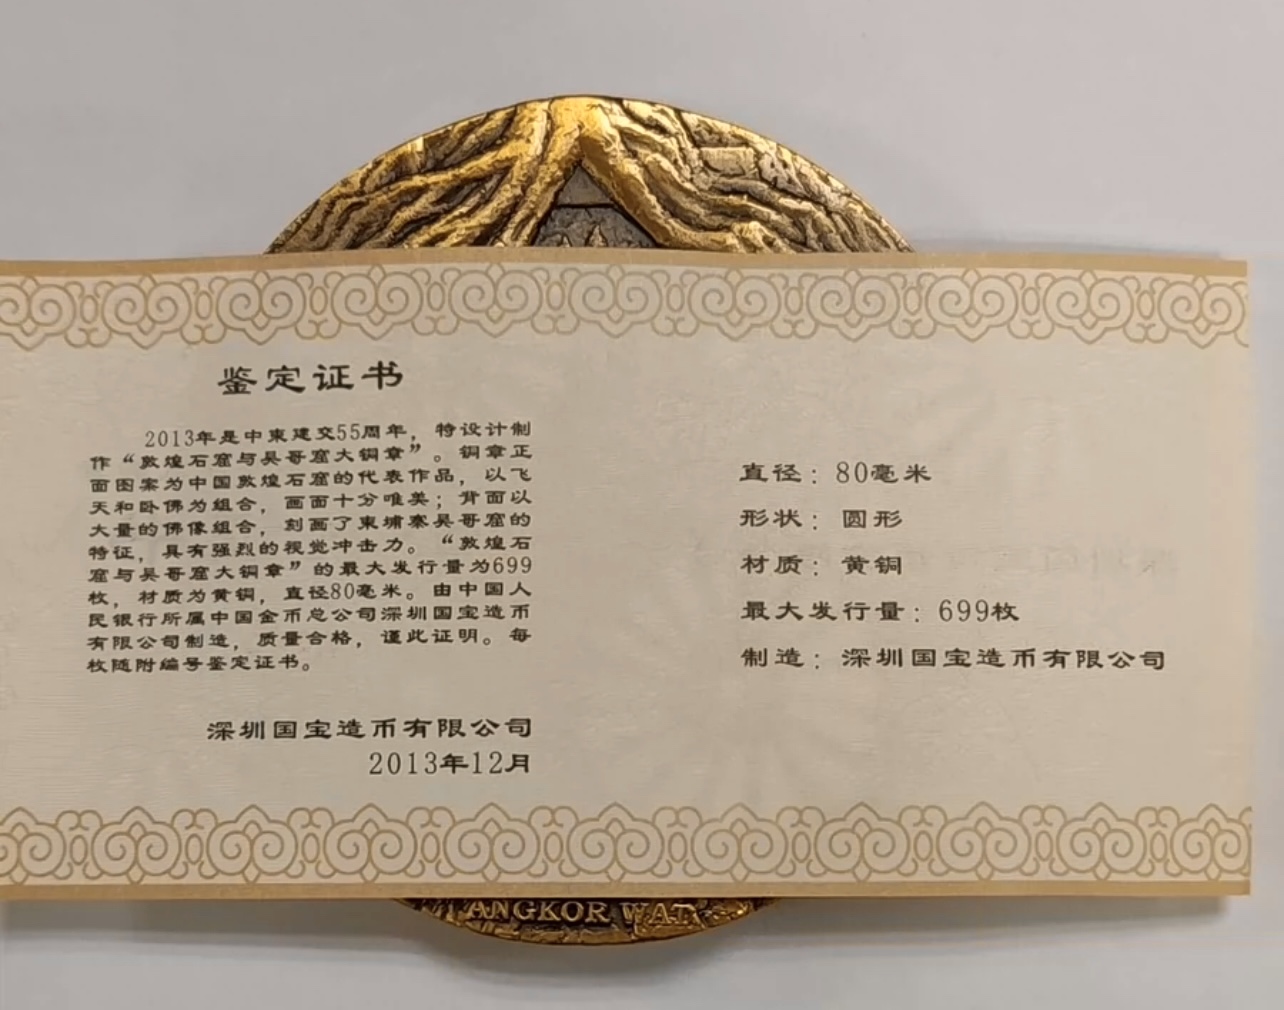 鉴定证书
2013年是中柬建交55周年，特设计制
作“敦煌石窟与吴哥窟大铜章”。铜章正
面图案为中国敦煌石窟的代表作品，以飞
天和卧佛为组合，画面十分唯美；背面以
大量的佛像组合，刻画了柬埔寨吴哥窟的
特征，具有强烈的视觉冲击力。“敦煌石
窟与吴哥窟大铜章”的最大发行量为699
枚，材质为黄铜，直径80毫米。由中国人
民银行所属中国金币总公司深圳国宝造币
有限公司制造，质量合格，谨此证明。每
枚随附编号鉴定证书。
深圳国宝造币有限公司
2013年12月
直径：80毫米
形状：圆形
材质：黄铜
最大发行量：699枚
制造：深圳国宝造币有限公司
ANGKOR WAT